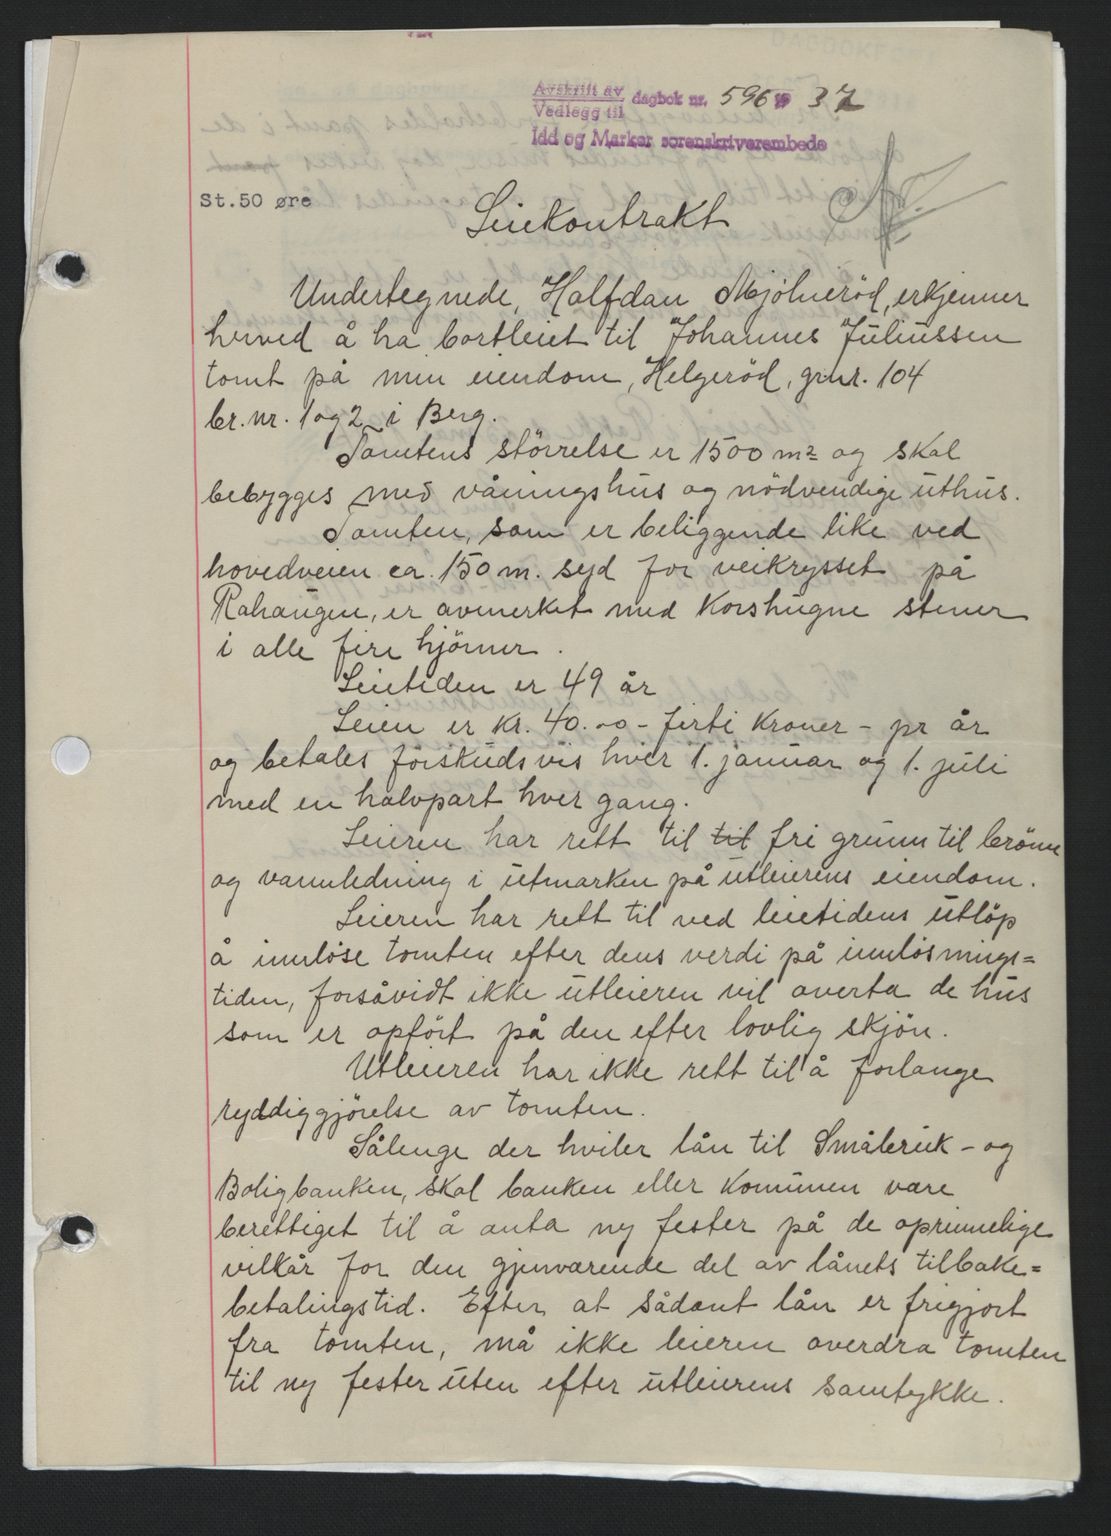 Avskrift av
Vedlegg til
dagbok nr. 596 37
Idd og Marker sorenskriverembede
St.50 øre
Leiekontrakt
Undertegnede, Halfdan Mjölneröd, erkjenner
herved å ha bortleiet til Johannes Juliussen
tomt på min eiendom, Helgeröd, grnr. 104
br.nr. 1 og 2 i Berg.
Tomtens störrelse er 1500 m² og skal
bebygges med våningshus og nödvendige uthus.
Tomten, som er beliggende like ved
hovedveien ca. 150 m. syd for veikrysset på
Rahaugen, er avmerket med korshugne stener
i alle fire hjörner.
Leietiden er 49 år
Leien er kr. 40.00 - firti kroner - pr år
og betales förskudsvis hver 1. januar og 1. juli
med en halvpart hver gang.
Leieren har rett til til fri grunn til brönn
og vannledning i utmarken på utleierens eiendom.
Leieren har rett til ved leietidens utlöp
å innlöse tomten efter dens verdi på innlösnings=
tiden, forsåvidt ikke utleieren vil overta de hus
som er opfört på den efter lovlig skjön.
Utleieren har ikke rett til å forlange
ryddiggjörelse av tomten.
Sålenge der hviler lån til Småbruk- og
Boligbanken, skal banken eller kommunen være
berettiget til å anta ny fester på de oprinnelige
vilkår for den gjenværende del av lånets tilbake=
betalingstid. Efter at sådant lån er frigjort
fra tomten, må ikke leieren overdra tomten
til ny fester uten efter utleierens samtykke.